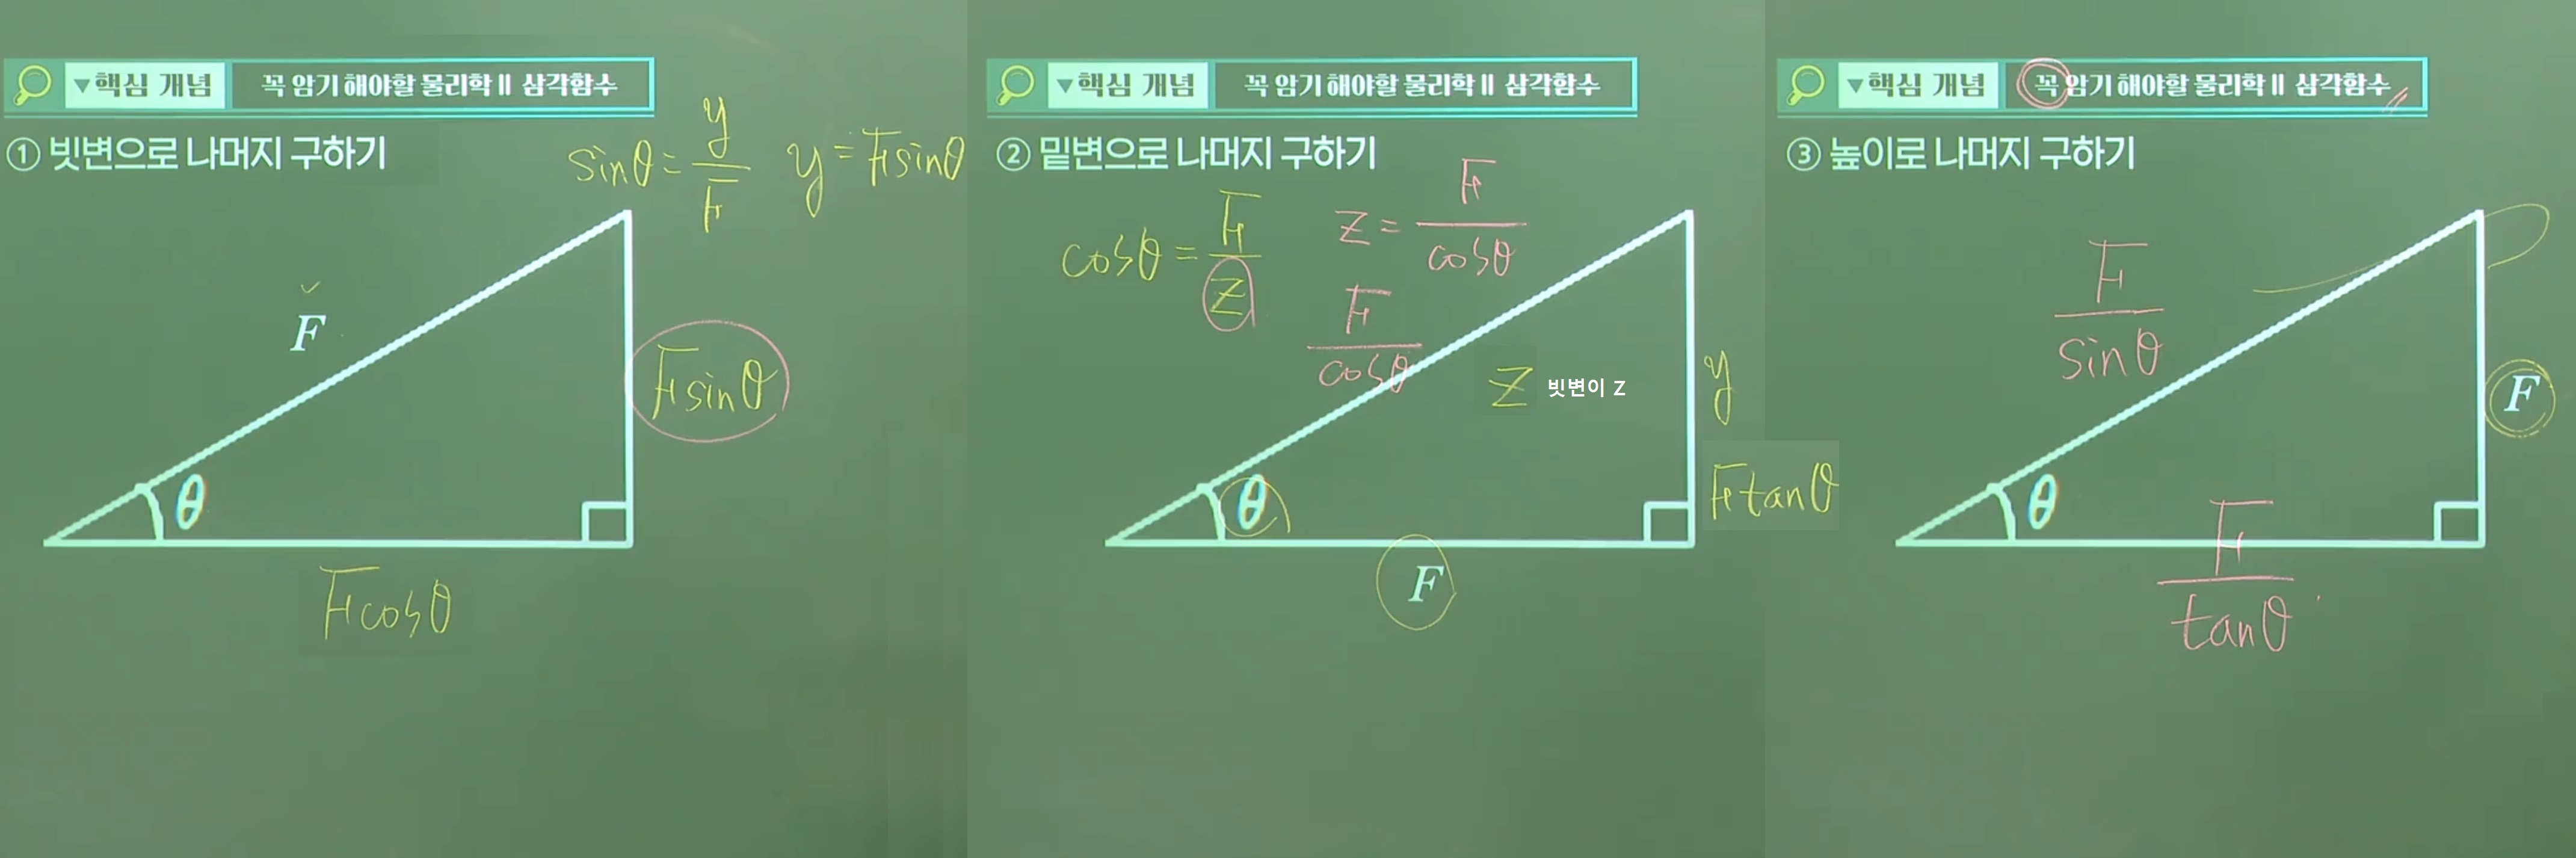 ▼핵심 개념 꼭 암기 해야할 물리학 II 삼각함수
① 빗변으로 나머지 구하기
sinθ = y/F y = Fsinθ
F
Fsinθ
θ
Fcosθ
▼핵심 개념 꼭 암기 해야할 물리학 II 삼각함수
② 밑변으로 나머지 구하기
cosθ = F/Z
Z = F/cosθ
F/cosθ
Z 빗변이 Z
y
Ftanθ
θ
F
▼핵심 개념 꼭 암기 해야할 물리학 II 삼각함수
③ 높이로 나머지 구하기
F/sinθ
F
θ
F/tanθ